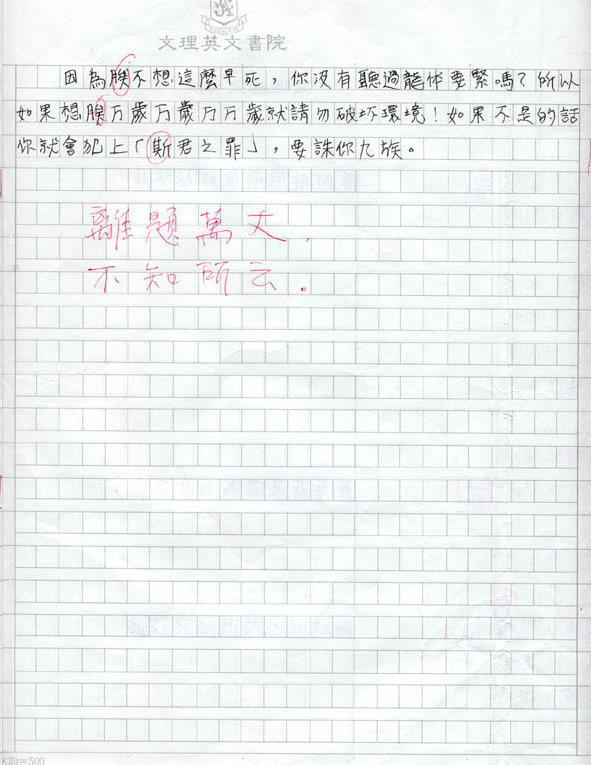 文理英文書院
因為朕不想這麼早死，你没有聽過龍体要緊嗎？所以
如果想朕万歲万歲万万歲就請勿破坏環境！如果不是的話
你就會犯上「斯君之罪」，要誅你九族。
離題萬丈，
不知所云。
K20=500